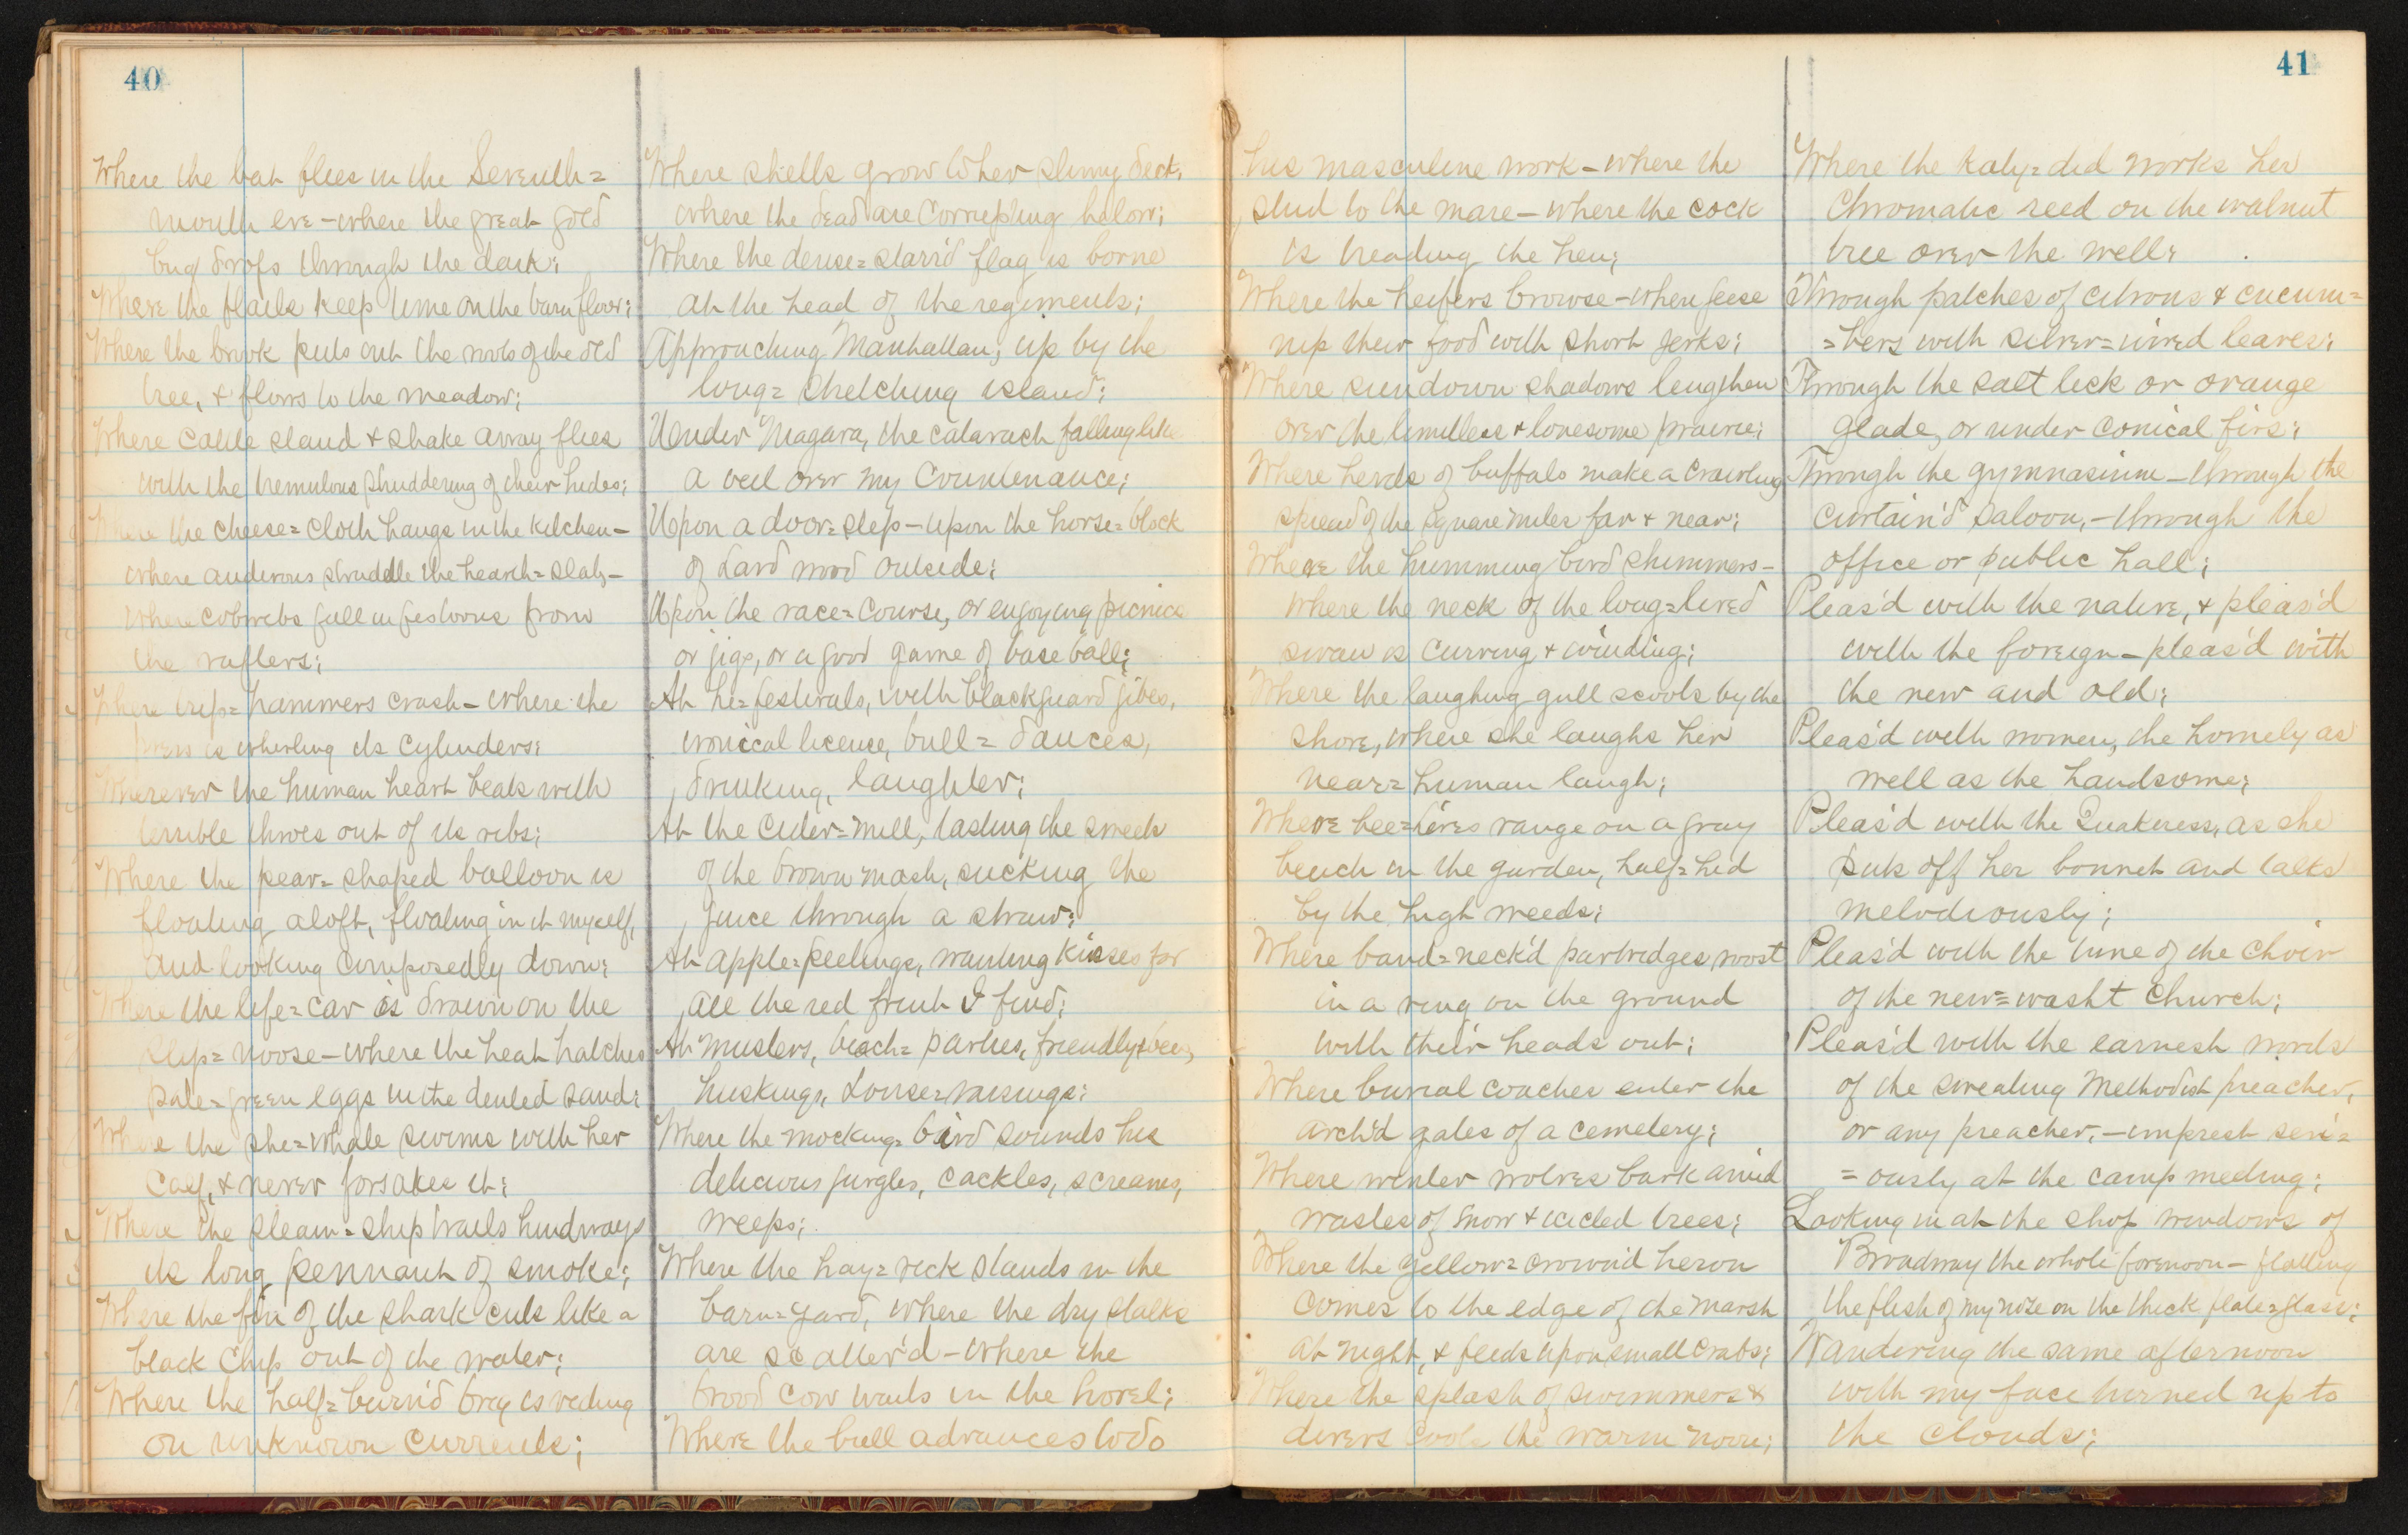 40
Where the bat flies in the Seventh=
month eve - where the great gold
bug drops through the dark;
Where the flails keep time on the barn floor;
Where the brook puts out the roots of the old
tree, & flows to the meadow;
Where cattle stand & shake away flies
with the tremulous shuddering of their hides;
Where the cheese=cloth hangs in the kitchen -
where andirons straddle the hearth=slab -
where cobwebs fall in festoons from
the rafters;
Where trip=hammers crash - where the
press is whirling its cylinders;
Wherever the human heart beats with
terrible throes out of its ribs;
Where the pear=shaped balloon is
floating aloft, floating in it myself,
and looking composedly down;
Where the life=car is drawn on the
slip=noose - where the heat hatches
pale=green eggs in the dented sand;
Where the she=whale swims with her
calf, & never forsakes it;
Where the steam=ship trails hindways
its long pennant of smoke;
Where the fin of the shark cuts like a
black chip out of the water;
Where the half=burn'd brig is riding
on unknown currents;
Where shells grow to her slimy deck,
where the dead are corrupting below;
Where the dense=starr'd flag is borne
at the head of the regiments;
Approaching Manhattan, up by the
long=stretching island;
Under Niagara, the cataract falling like
a veil over my countenance;
Upon a door=step - upon the horse=block
of hard wood outside;
Upon the race=course, or enjoying picnics
or jigs, or a good game of base ball;
At he=festivals, with blackguard gibes,
ironical license, bull=dances,
drinking, laughter;
At the cider=mill, tasting the sweets
of the brown mash, sucking the
juice through a straw;
At apple=peelings, wanting kisses for
all the red fruit I find;
At musters, beach=parties, friendly bees,
huskings, house=raisings;
Where the mocking=bird sounds his
delicious gurgles, cackles, screams,
weeps;
Where the hay=rick stands in the
barn=yard, where the dry stalks
are scatter'd - where the
brood cow waits in the hovel;
Where the bull advances to do
41
his masculine work - where the
stud to the mare - where the cock
is treading the hen;
Where the heifers browse - where geese
nip their food with short jerks;
Where sundown shadows lengthen
over the limitless & lonesome prairie;
Where herds of buffalo make a crawling
spread of the square miles far & near;
Where the humming bird shimmers -
where the neck of the long=lived
swan is curving & winding;
Where the laughing gull scoots by the
shore, where she laughs her
near=human laugh;
Where bee=hives range on a gray
bench in the garden, half=hid
by the high weeds;
Where band=neck'd partridges roost
in a ring on the ground
with their heads out;
Where burial coaches enter the
arch'd gates of a cemetery;
Where winter wolves bark amid
wastes of snow & icicled trees;
Where the yellow=crown'd heron
comes to the edge of the marsh
at night, & feeds upon small crabs;
Where the splash of swimmers &
divers cools the warm noon;
Where the katy=did works her
chromatic reed on the walnut
tree over the well;
Through patches of citrons & cucum=
=bers with silver=wired leaves;
Through the salt lick or orange
glade, or under conical firs;
Through the gymnasium - through the
curtain'd saloon, - through the
office or public hall;
Pleas'd with the native, & pleas'd
with the foreign - pleas'd with
the new and old;
Pleas'd with women, the homely as
well as the handsome;
Pleas'd with the Quakeress, as she
puts off her bonnet and talks
melodiously;
Pleas'd with the tune of the choir
of the new=washt church;
Pleas'd with the earnest words
of the sweating Methodist preacher,
or any preacher, - imprest seri=
=ously at the camp meeting;
Looking in at the shop windows of
Broadway the whole forenoon - flatting
the flesh of my nose on the thick plate=glass;
Wandering the same afternoon
with my face turned up to
the clouds;